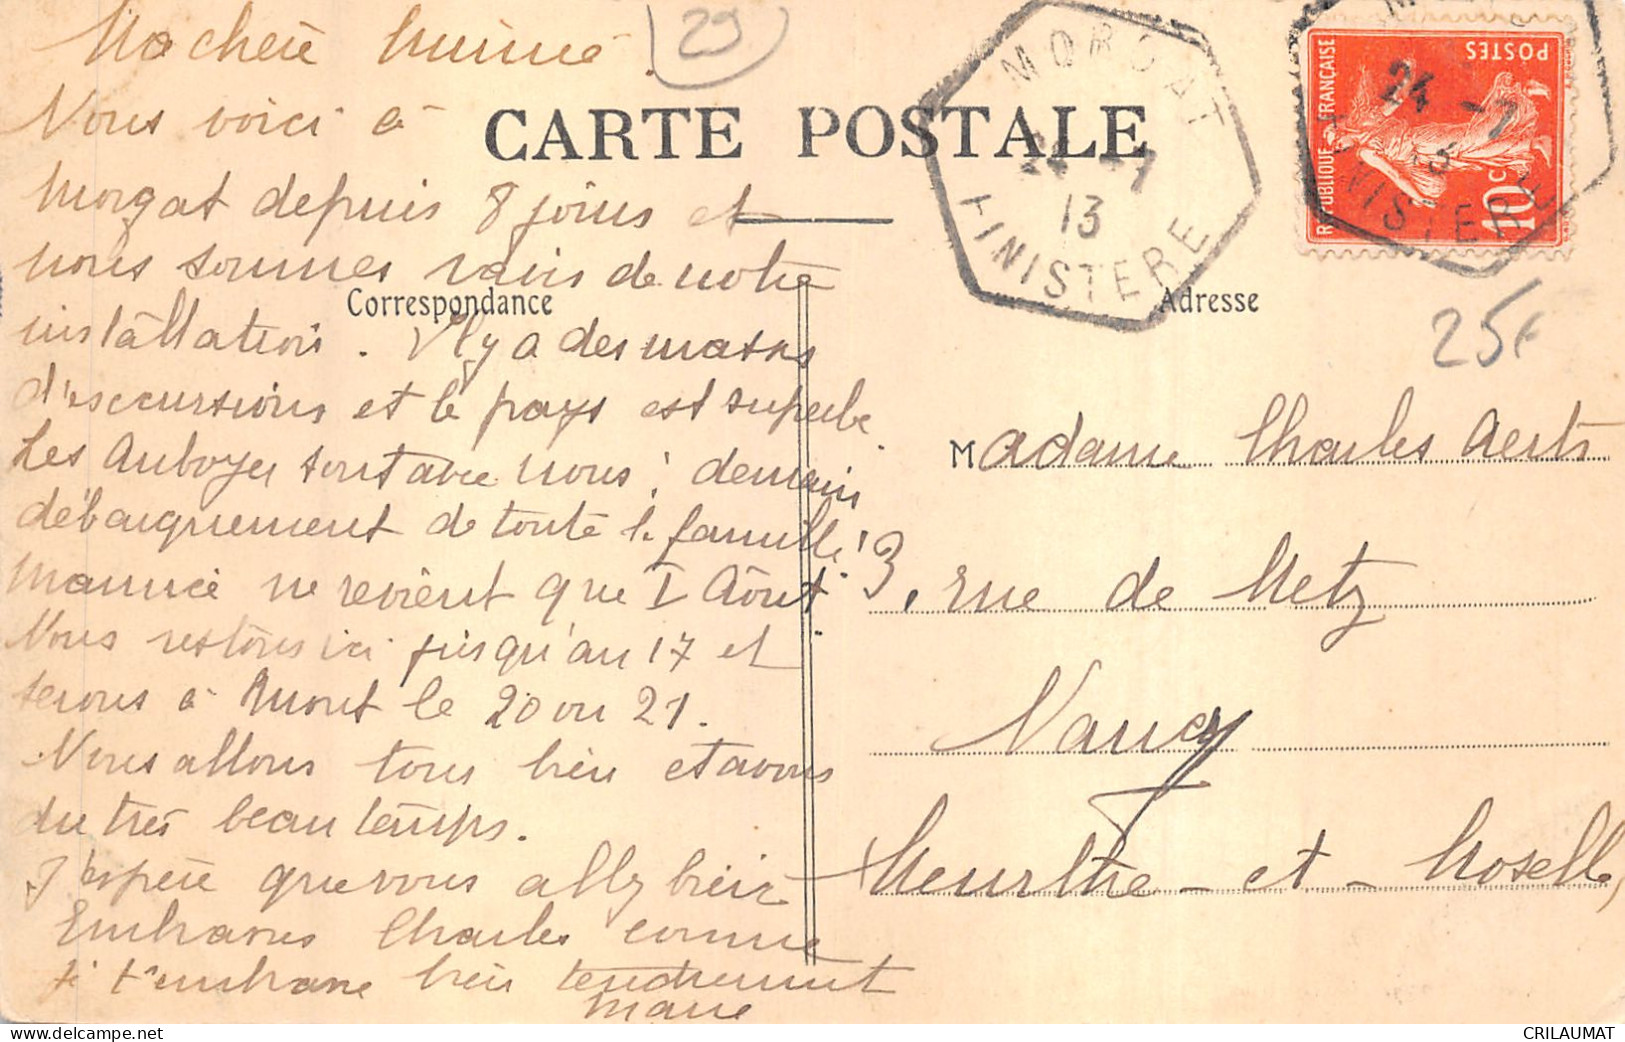 Ma chère Mimie.
29
Nous voici à
CARTE POSTALE
Morgat depuis 8 jours et
nous sommes ravis de notre
Correspondance
installation. Il y a des masses
d'excursions et le pays est superbe.
Les Auboyer sont avec nous ! demain
débarquement de toute la famille !
Maurice ne revient que I Août.
Nous restons ici jusqu'au 17 et
serons à Mont le 20 ou 21.
Nous allons tous bien et avons
du très beau temps.
J'espère que vous allez bien.
Embrasses Charles comme
je t'embrasse bien tendrement
Marie
MORGAT
24 - 7
13
FINISTERE
REPUBLIQUE FRANÇAISE
POSTES
10 C
24 - 7
13
FINISTERE
Adresse
25F
Madame Charles Aerts
3, rue de Metz
Nancy
Meurthe-et-Moselle
www.delcampe.net
CRILAUMAT